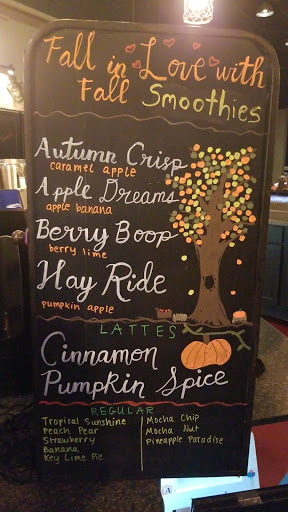 Fall in Love with
Fall Smoothies
Autumn Crisp
caramel apple
Apple Dreams
apple banana
Berry Boop
berry lime
Hay Ride
pumpkin apple
LATTES
Cinnamon
Pumpkin Spice
REGULAR
Tropical Sunshine
Peach Pear
Strawberry
Banana
Key Lime Pie
Mocha Chip
Mocha Nut
Pineapple Paradise